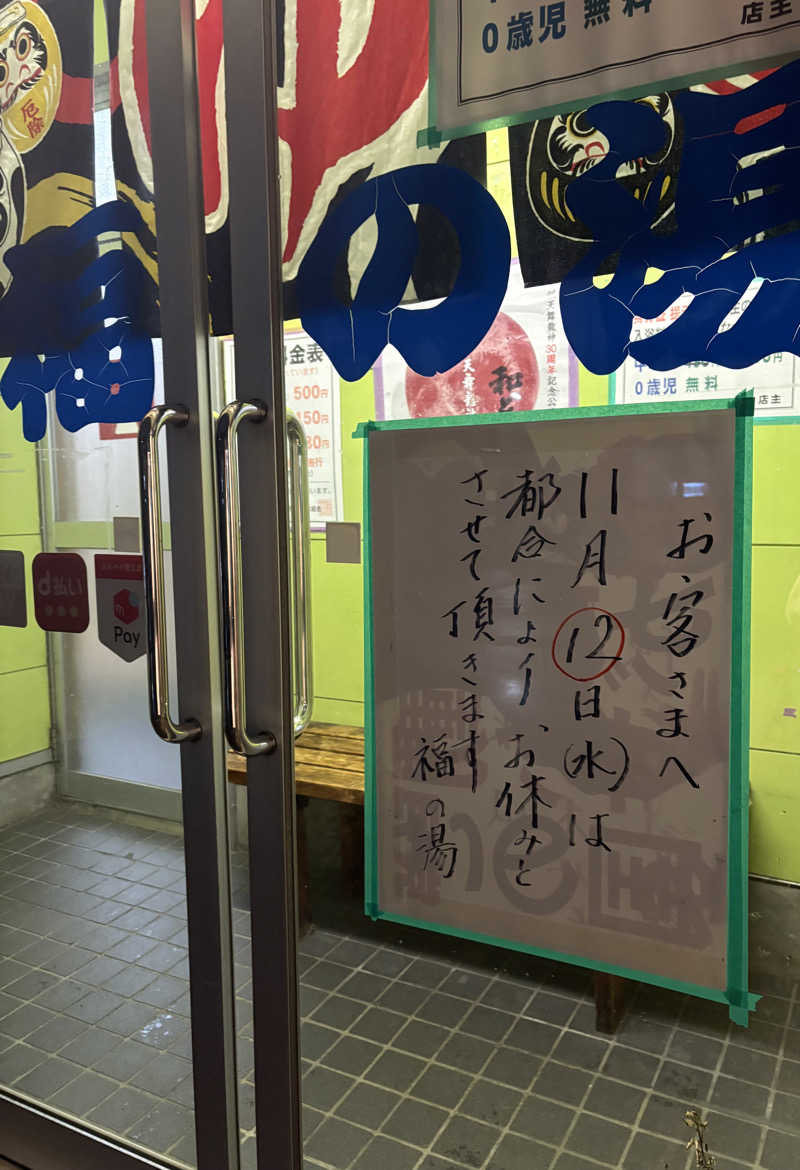 お客さまへ
11月12日(水)は
都合によりお休みと
させて頂きます
福の湯
福の湯
0歳児 無料
店主
厄除
金表
500円
150円
80円
天舞龍神
30周年記念公
0歳児 無料
店主
d払い
Pay